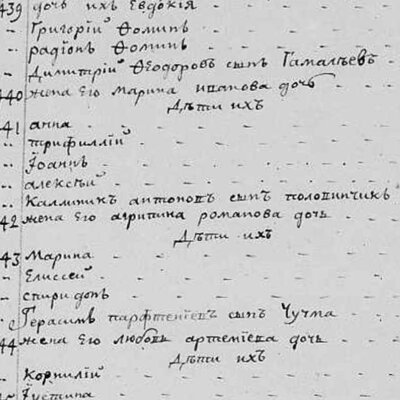 439 дочь ихъ Евдокїя
Григорїй Ѳоминъ
радїонъ Ѳоминъ
Димитрїй Ѳеодоровъ сынъ Гамалѣевъ
440 жена Его Марина иванова дочь
Дѣти ихъ
41 анна
трифиллїй
Їоаннъ
алексѣй
Калиникъ антоновъ сынъ половинчикъ
42 жена Его агрипина романова дочь
Дѣти ихъ
43 Марина
Елиссей
спиридонъ
Герасимъ парфтенїевъ сынъ Чучма
44 жена Его любовь артемїева дочь
Дѣти ихъ
Корнилїй
Їустина